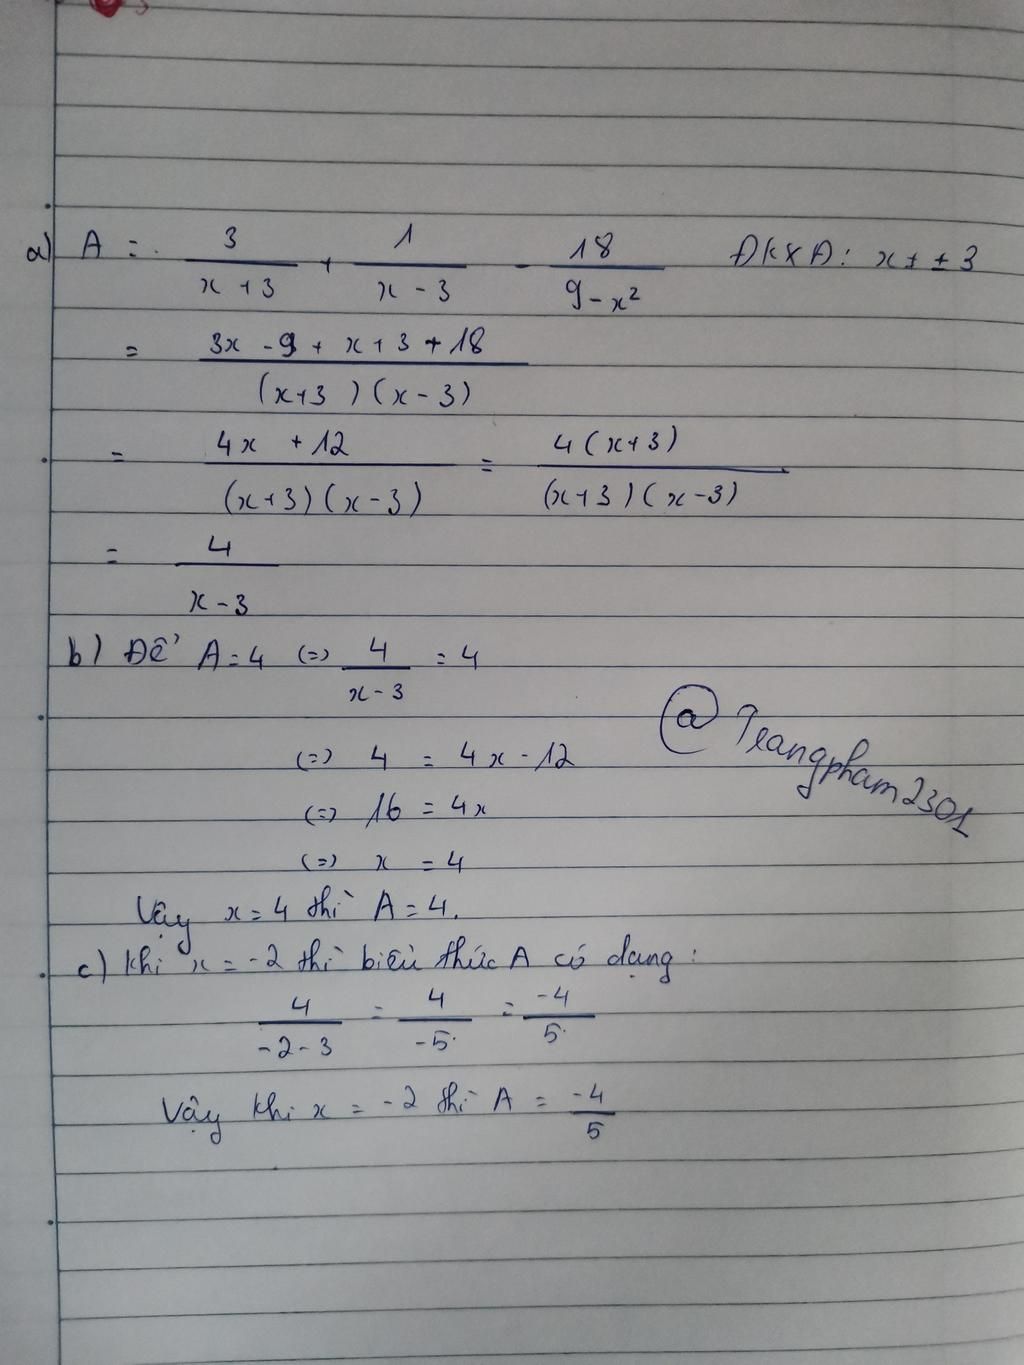 a) A = 3/(x+3) + 1/(x-3) - 18/(9-x²) ĐKXĐ: x ≠ ±3
= (3x - 9 + x + 3 + 18)/((x+3)(x-3))
= (4x + 12)/((x+3)(x-3)) = 4(x+3)/((x+3)(x-3))
= 4/(x-3)
b) Để A = 4 (=) 4/(x-3) = 4
(=) 4 = 4x - 12
(=) 16 = 4x
(=) x = 4
@Trangpham2301
Vậy x = 4 thì A = 4.
c) Khi x = -2 thì biểu thức A có dạng:
4/(-2-3) = 4/-5 = -4/5
Vậy khi x = -2 thì A = -4/5